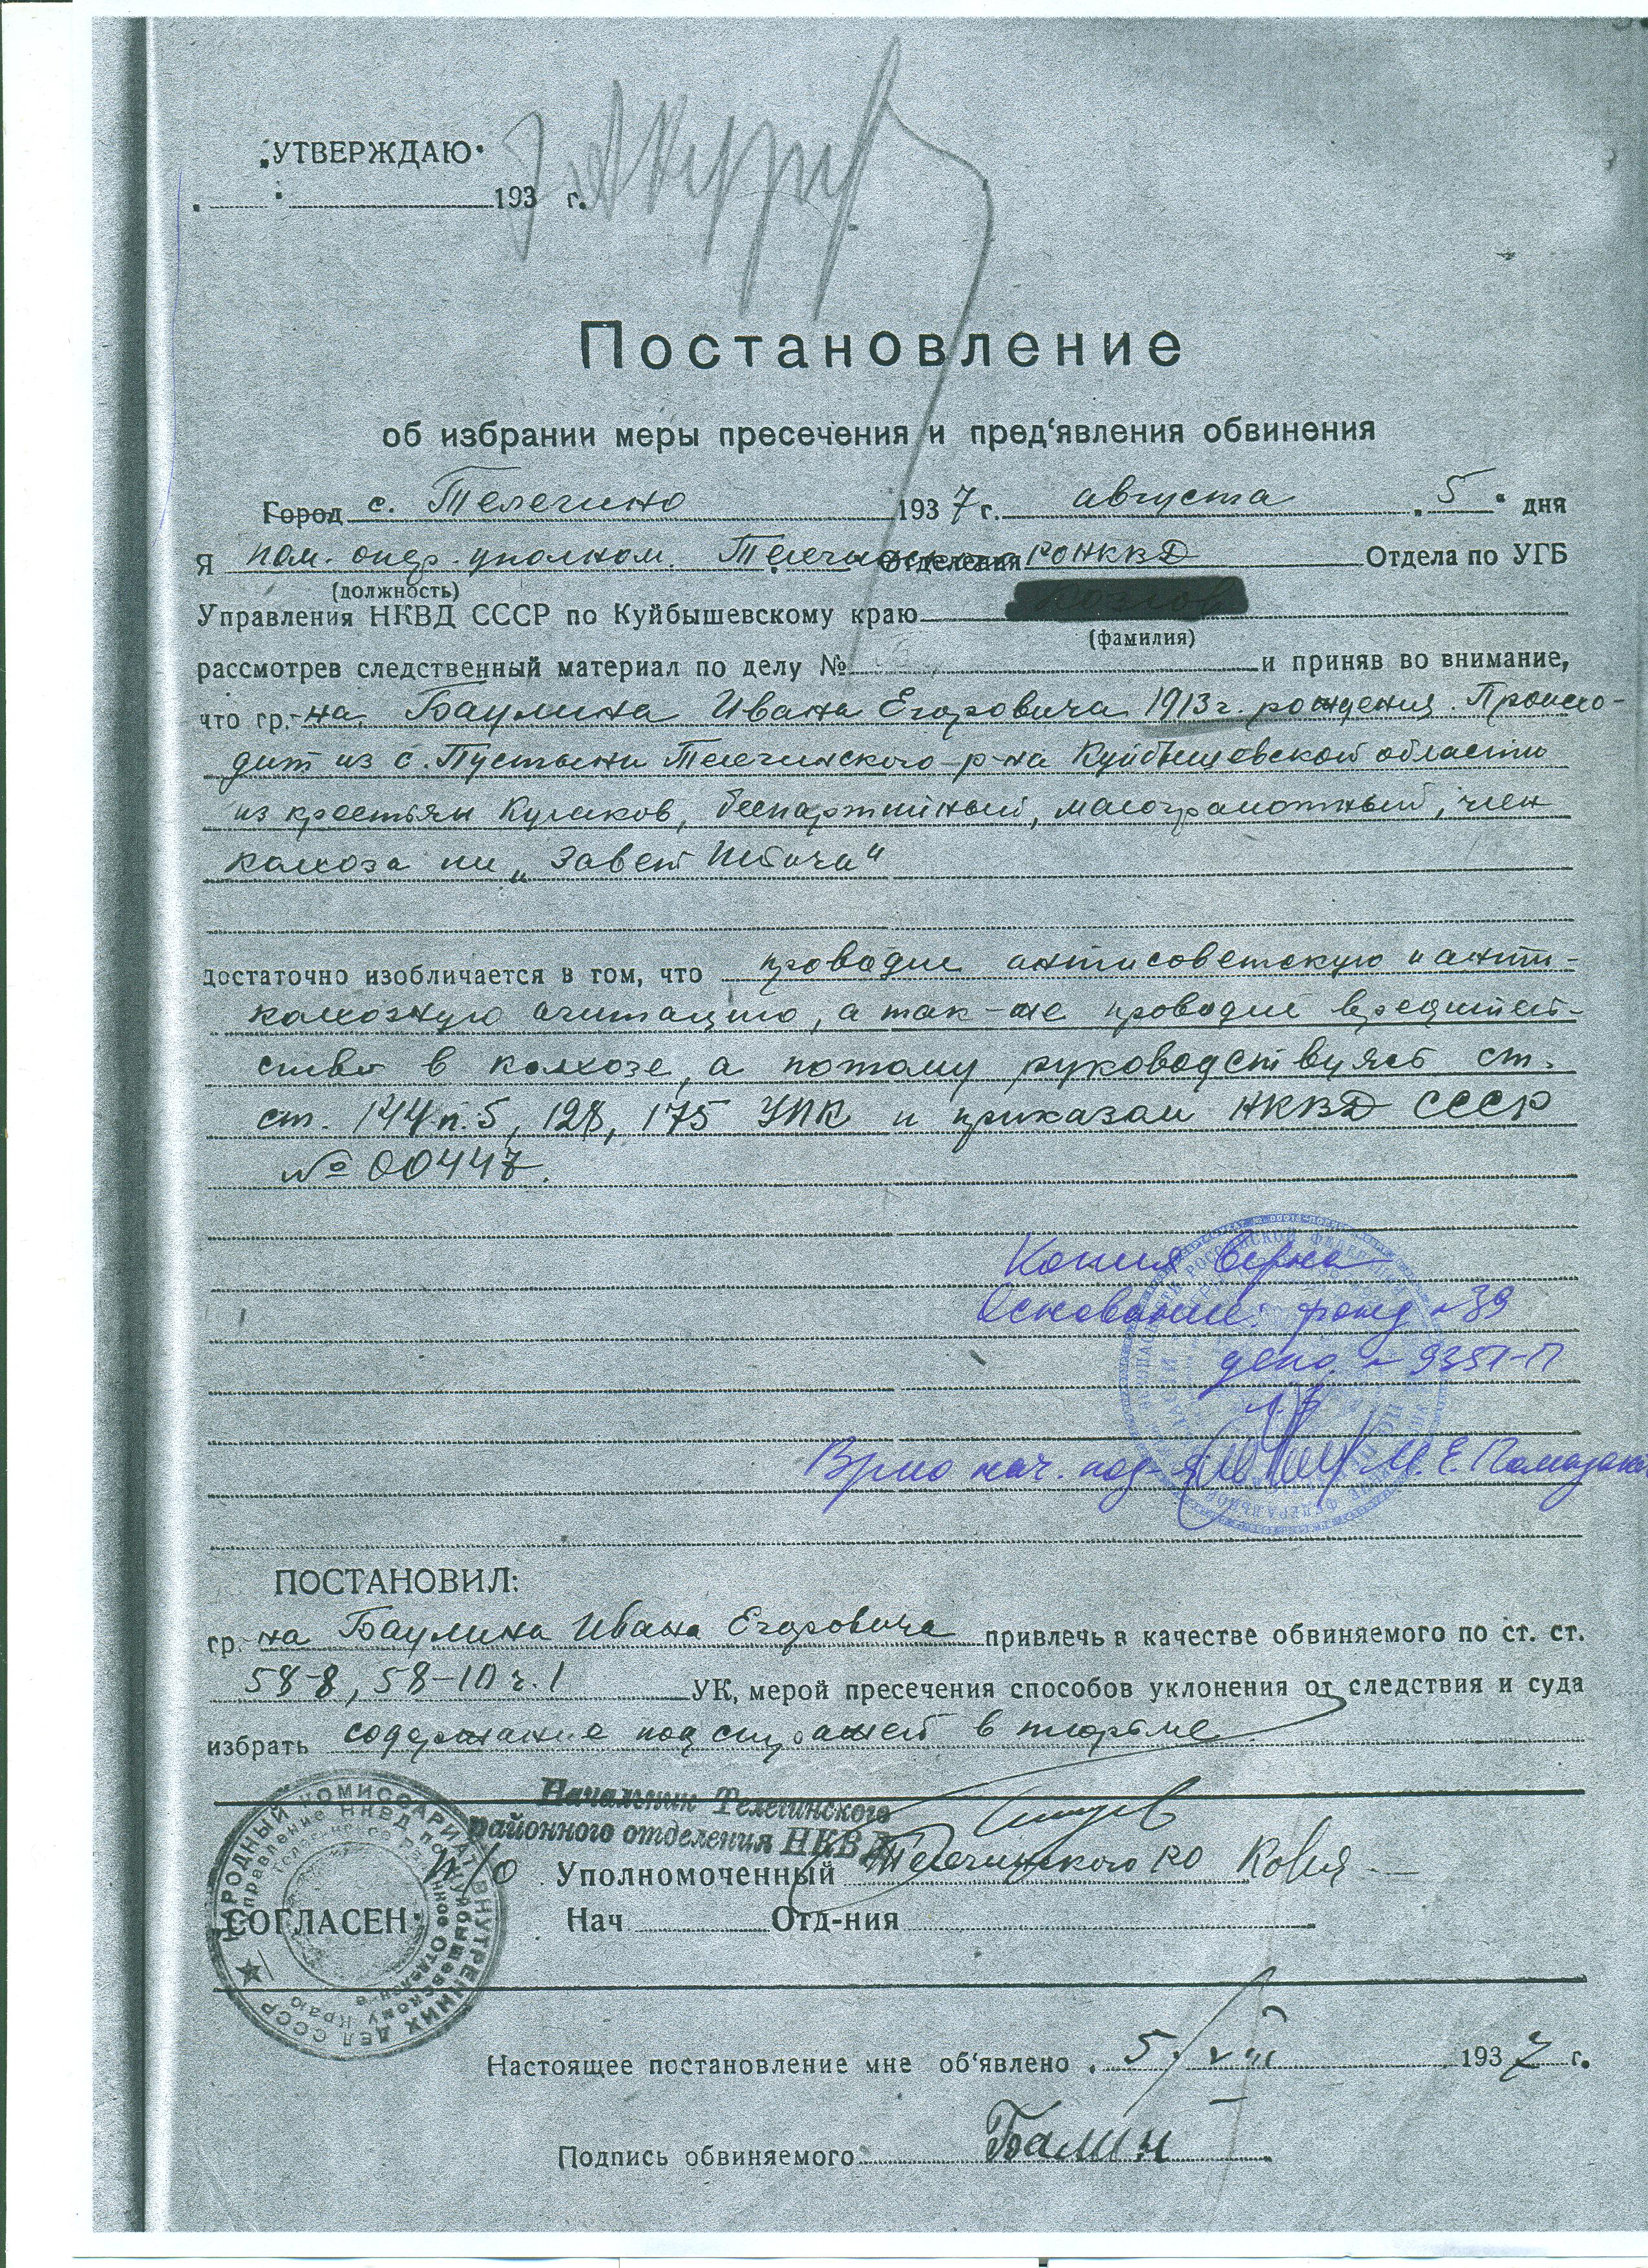 „УТВЕРЖДАЮ"
193 г.
Постановление
об избрании меры пресечения и пред'явления обвинения
Город с. Телегино 1937 г. августа „5" дня
Я пом. опер. уполном. Телегинского Отделения РОНКВД Отдела по УГБ
(должность)
Управления НКВД СССР по Куйбышевскому краю
(фамилия)
рассмотрев следственный материал по делу № и приняв во внимание,
что гр.-на Баулина Ивана Егоровича 1913 г. рождения. Происхо-
дит из с. Пустыни Телегинского р-на Куйбышевской области
из крестьян Кулаков, беспартийный, малограмотный, член
колхоза им „Завет Ильича"
достаточно изобличается в том, что проводил антисоветскую и анти-
колхозную агитацию, а так-же проводил вредитель-
ство в колхозе, а потому руководствуясь ст.
ст. 144 п. 5, 128, 175 УПК и приказом НКВД СССР
№ 00447.
Копия верна
Основание: фонд №39
дело № 9351-П
Врио нач. под-я М. Е.
ПОСТАНОВИЛ:
гр.-на Баулина Ивана Егоровича привлечь в качестве обвиняемого по ст. ст.
58-8, 58-10 ч. 1 УК, мерой пресечения способов уклонения от следствия и суда
избрать содержание под стражей в тюрьме.
Начальник Телегинского
районного отделения НКВД
Уполномоченный Телегинского РО
СОГЛАСЕН: Нач Отд-ния
НАРОДНЫЙ КОМИССАРИАТ ВНУТРЕННИХ ДЕЛ СССР
Управление НКВД по Куйбышевскому Краю
Телегинское Районное Отделение
Настоящее постановление мне об'явлено „5" VIII 1937 г.
Подпись обвиняемого Баулин